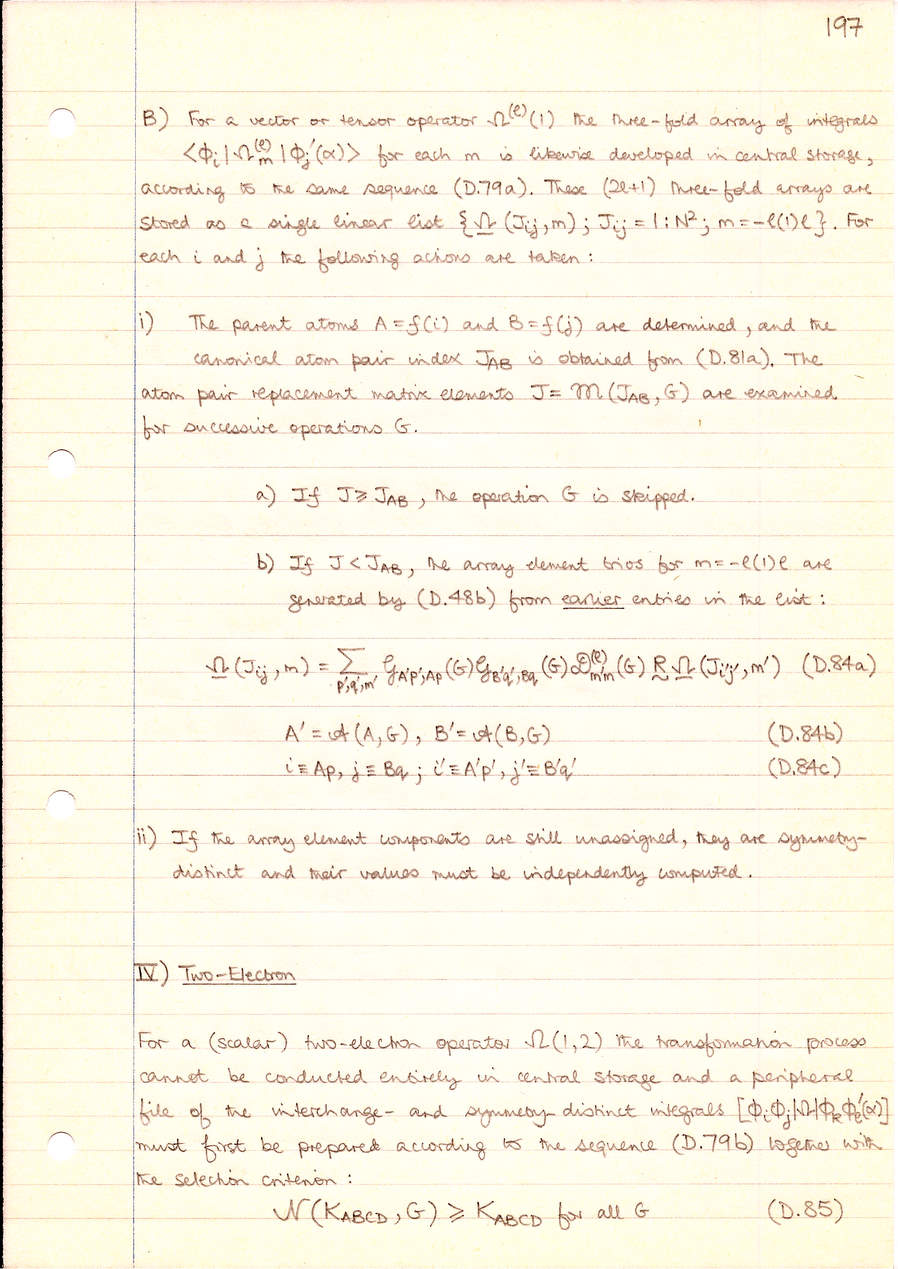 197
B) For a vector or tensor operator Ω^(ℓ)(1) the three-fold array of integrals
<ϕ_i|Ω_m^(ℓ)|ϕ_j'(α)> for each m is likewise developed in central storage,
according to the same sequence (D.79a). These (2ℓ+1) three-fold arrays are
stored as a single linear list {Ω(J_ij, m); J_ij = 1:N²; m = -ℓ(1)ℓ}. For
each i and j the following actions are taken:
i) The parent atoms A = f(i) and B = f(j) are determined, and the
canonical atom pair index J_AB is obtained from (D.81a). The
atom pair replacement matrix elements J = 𝓜(J_AB, G) are examined
for successive operations G.
a) If J ≥ J_AB, the operation G is skipped.
b) If J < J_AB, the array element trios for m = -ℓ(1)ℓ are
generated by (D.48b) from earlier entries in the list:
Ω(J_ij, m) = Σ_p',q',m' 𝒢_A'p',Ap(G) 𝒢_B'q',Bq(G) 𝒟_m'm^(ℓ)(G) R Ω(J_i'j', m') (D.84a)
A' = 𝒜(A,G), B' = 𝒜(B,G) (D.84b)
i ≡ Ap, j ≡ Bq; i' ≡ A'p', j' ≡ B'q' (D.84c)
ii) If the array element components are still unassigned, they are symmetry-
distinct and their values must be independently computed.
IV) Two-Electron
For a (scalar) two-electron operator Ω(1,2) the transformation process
cannot be conducted entirely in central storage and a peripheral
file of the interchange- and symmetry-distinct integrals [ϕ_iϕ_j|Ω|ϕ_kϕ_ℓ'(α)]
must first be prepared according to the sequence (D.79b) together with
the selection criterion:
𝒩(K_ABCD, G) ≥ K_ABCD for all G (D.85)